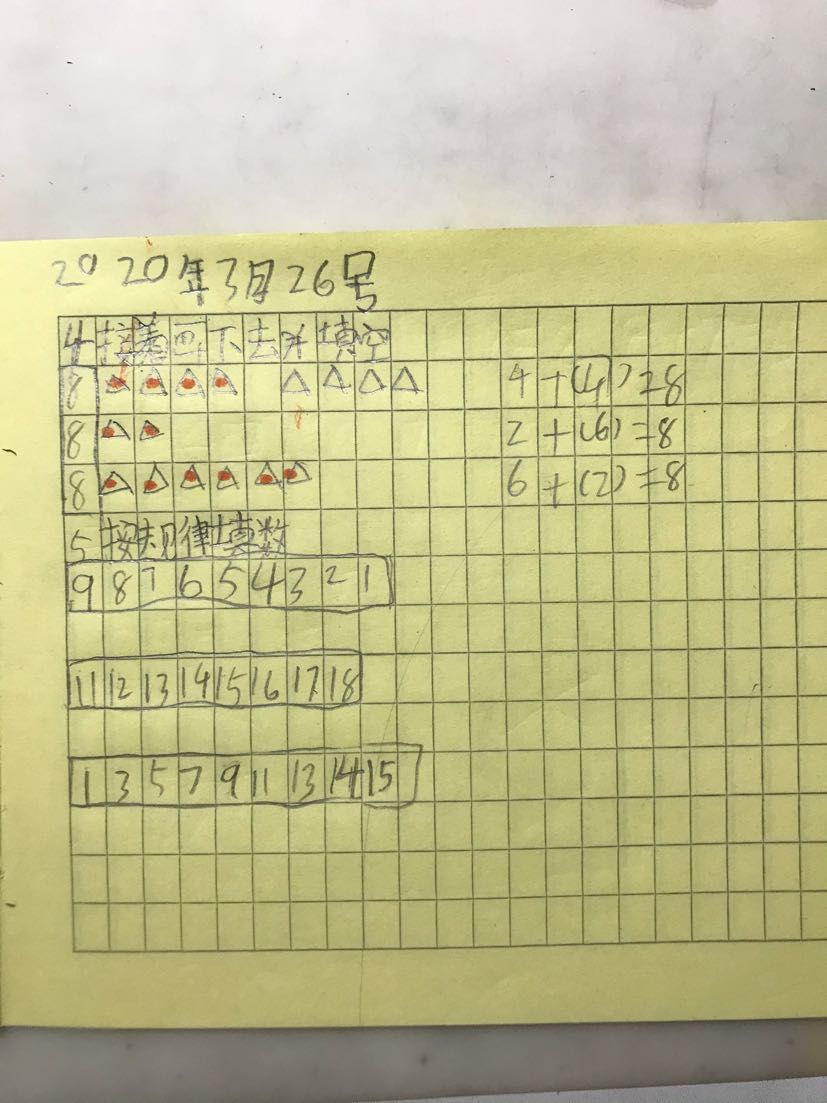 2020年3月26号
4接着画下去并填空
8 △△△△ △△△△ 4+(4)=8
8 △△ 2+(6)=8
8 △△△△△△ 6+(2)=8
5 按规律填数
9 8 7 6 5 4 3 2 1
11 12 13 14 15 16 17 18
1 3 5 7 9 11 13 14 15